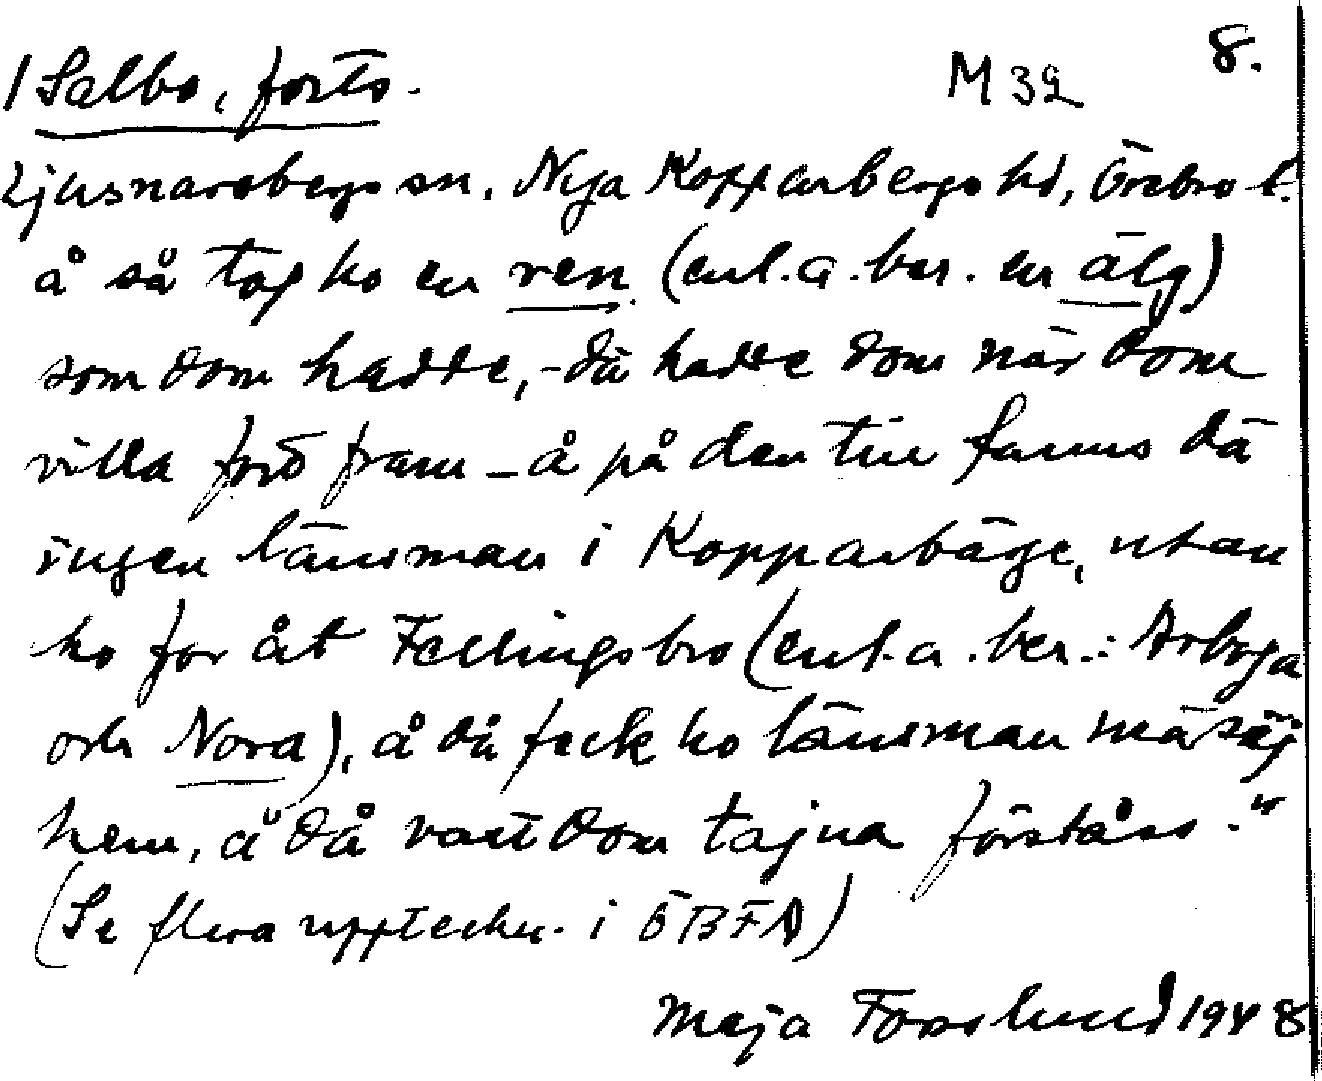 1 Salbo, forts.
M 32
8.
Ljusnarsbergs sn. Nya Kopparbergs hd, Örebro l.
å så tog ho en ren (enl. a. ber. en älg)
som dom hadde, - dä hadde dom när dom
villa for fram - å på den tin fanns dä
ingen länsman i Kopparbärge, utan
ho for åt Fellingsbro (enl. a. ber.: Arboga
och Nora), å då feck ho länsman mä säj
hem, å då vart dom tajna förståss."
(Se flera uppteckn. i ÖBFA)
Maja Forslund 1948